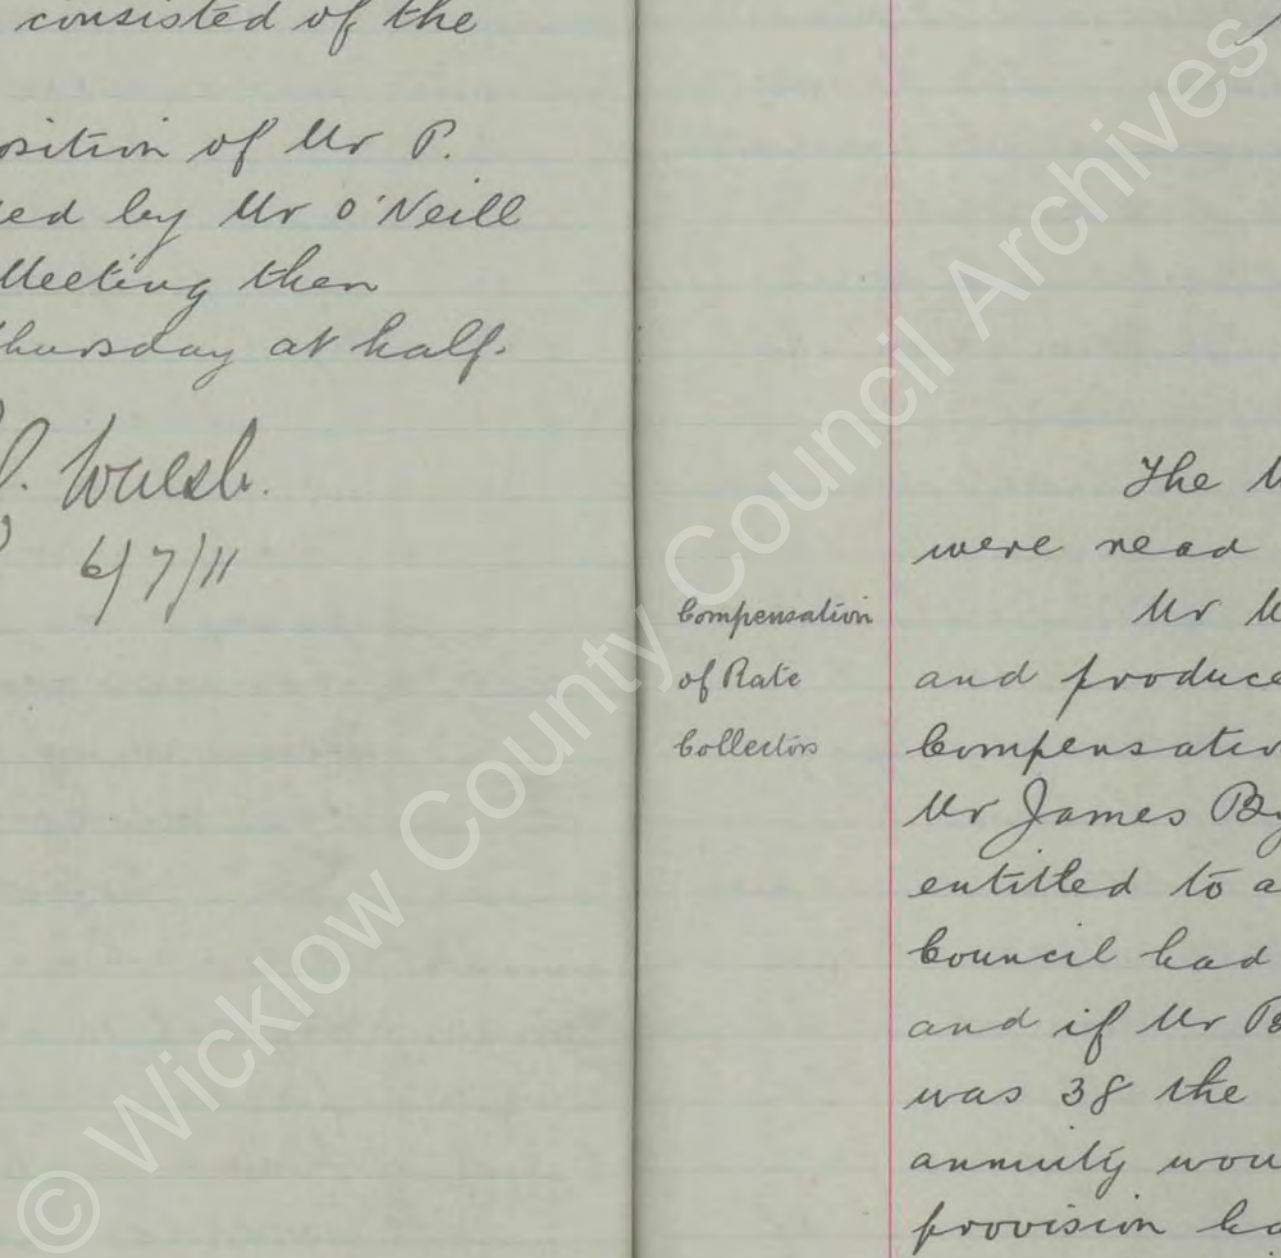 consisted of the
osition of Mr P.
ed by Mr O'Neill
Meeting then
hursday at half-
J. Walsh.
6/7/11
Compensation
of Rate
Collectors
The M
were read
Mr M
and produce
Compensatio
Mr James By
entitled to a
Council had
and if Mr B
was 38 the
annuity wou
provision ha
© Wicklow County Council Archives